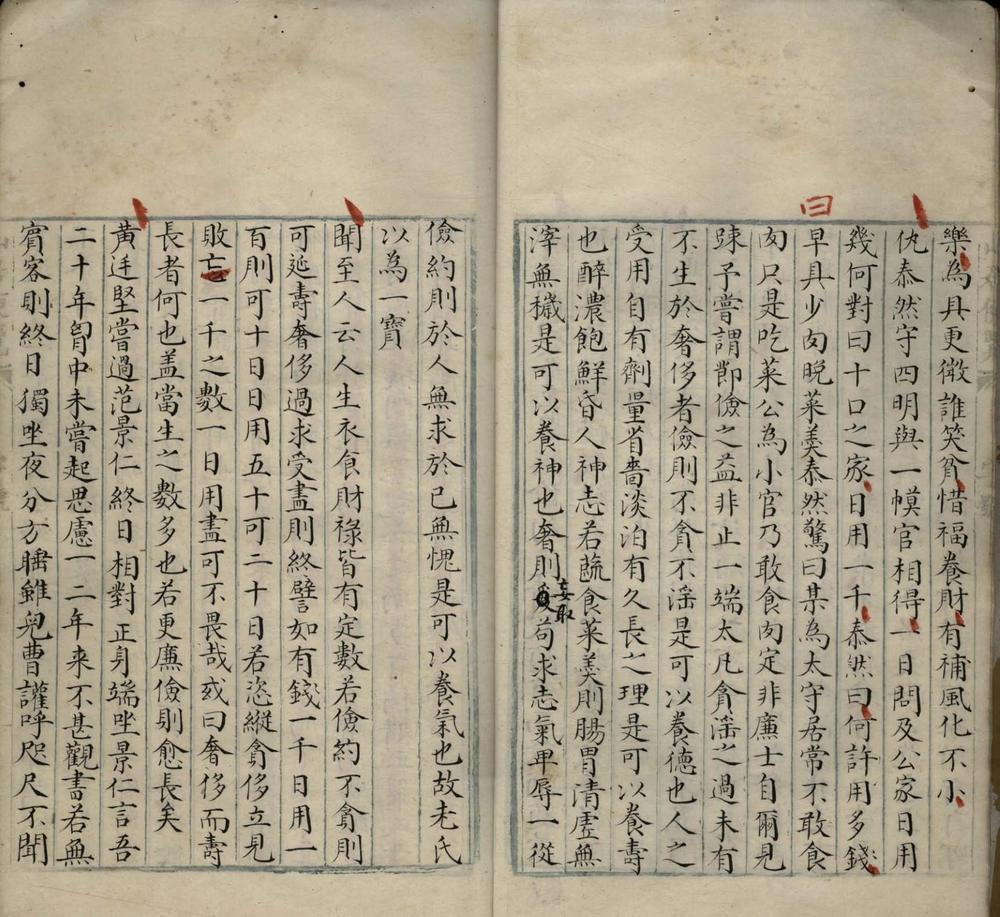 樂為具更徵誰笑貧惜福養財有補風化不小
仇泰然守四明與一幙官相得一日問及公家日用
幾何對曰十口之家日用一千泰然曰何許用多錢
曰
早具少肉晚菜羮泰然驚曰某為太守居常不敢食
肉只是吃菜公為小官乃敢食肉定非廉士自爾見
踈予嘗謂節儉之益非止一端大凡貪淫之過未有
不生於奢侈者儉則不貪不淫是可以養德也人之
受用自有劑量省嗇淡泊有久長之理是可以養壽
也醉濃飽鮮昏人神志若蔬食菜羮則腸胃清虛無
滓無穢是可以養神也奢則妄取苟求志氣卑辱一從
儉約則於人無求於已無愧是可以養氣也故老氏
以為一寶
聞至人云人生衣食財祿皆有定數若儉約不貪則
可延壽奢侈過求受盡則終譬如有錢一千日用一
百則可十日日用五十可二十日若恣縱貪侈立見
敗亡一千之數一日用盡可不畏哉或曰奢侈而壽
長者何也盖當生之數多也若更廉儉則愈長矣
黄廷堅嘗過范景仁終日相對正身端坐景仁言吾
二十年胷中未嘗起思慮一二年来不甚觀書若無
賓客則終日獨坐夜分方睡雖兒曹讙呼咫尺不聞